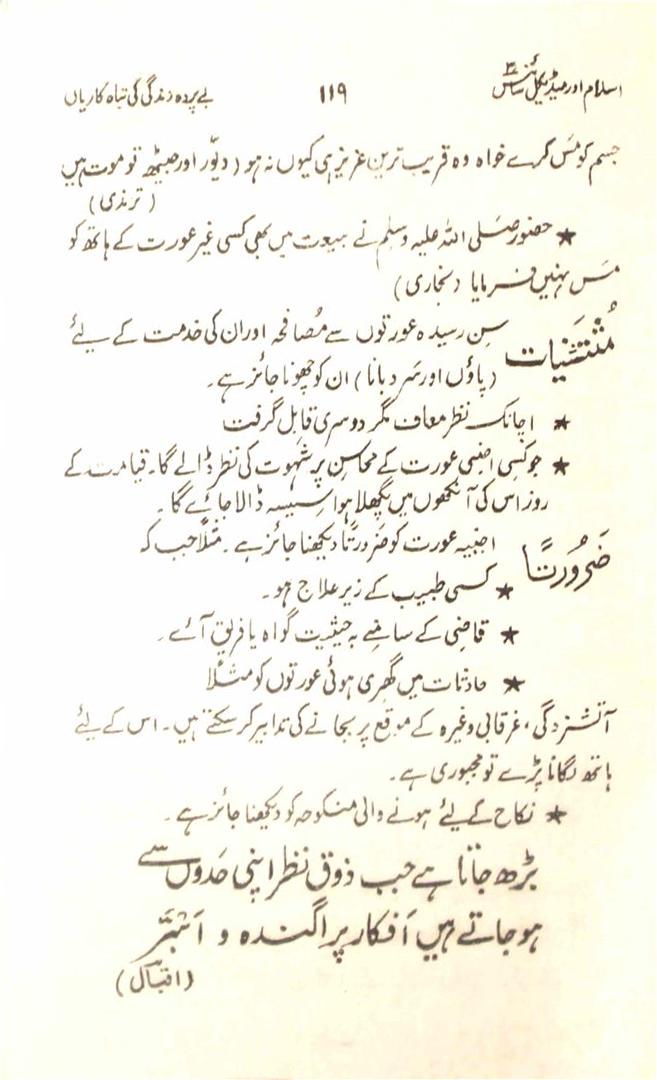 اسلام اور میڈیکل سائنس ۳ ۱۱۹ بے پردہ زندگی کی تباہ کاریاں
جسم کو مَس کرے خواہ وہ قریب ترین عزیز ہی کیوں نہ ہو (دیور اور جیٹھ تو موت ہیں
(ترمذی)
★ حضور صَلی اللہ علیہ وسلم نے بیعت میں بھی کسی غیر عورت کے ہاتھ کو
مَس نہیں فرمایا (بخاری)
مُثْتَثنیات سِن رسیدہ عورتوں سے مُصافحہ اور ان کی خدمت کے لیئے
(پاؤں اور سَر دبانا) ان کو چھونا جائز ہے۔
★ اچانک نظر معاف مگر دوسری قابل گرفت
★ جو کسی اجنبی عورت کے محاسن پر شہوت کی نظر ڈالے گا۔ قیامت کے
روز اس کی آنکھوں میں پگھلا ہوا سیسہ ڈالا جائے گا۔
ضَرُورَتًا اجنبیہ عورت کو ضرورتًا دیکھنا جائز ہے۔ مثلًا جب کہ
★ کسی طبیب کے زیر علاج ہو۔
★ قاضی کے سامنے بہ حیثیت گواہ یا فریق آئے۔
★ حادثات میں گھری ہوئی عورتوں کو مثلًا
آتشزدگی، غرقابی وغیرہ کے موقع پر بچانے کی تدابیر کر سکتے ہیں۔ اس کے لیئے
ہاتھ لگانا پڑے تو مجبوری ہے۔
★ نکاح کے لیئے ہونے والی منکوحہ کو دیکھنا جائز ہے۔
بڑھ جاتا ہے جب ذوق نظر اپنی حَدوں سے
ہو جاتے ہیں اَفکار پراگندہ و اَبتَر
(اقبال)